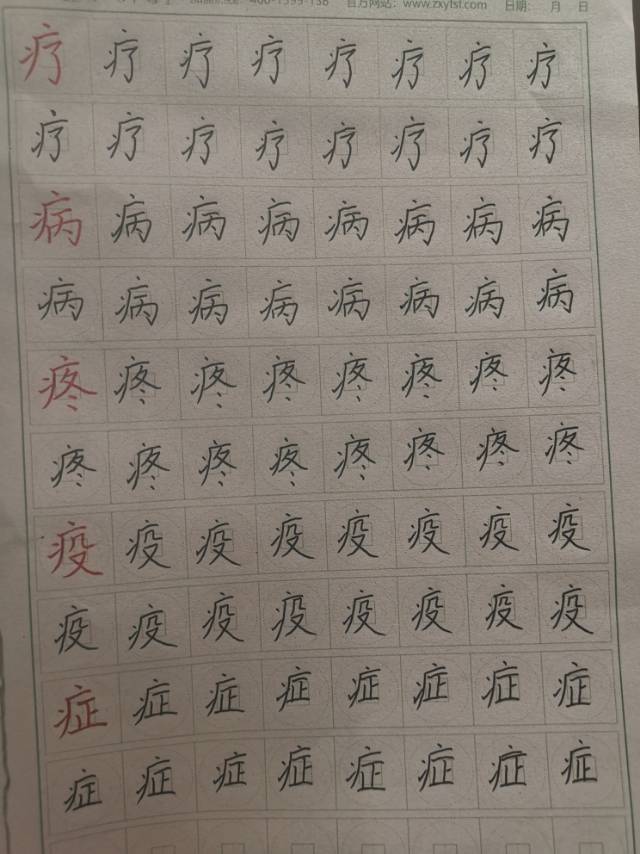 400-1599-138 官方网站：www.zxytsf.com 日期： 月 日
疗疗疗疗疗疗疗疗
疗疗疗疗疗疗疗疗
病病病病病病病病
病病病病病病病病
疼疼疼疼疼疼疼疼
疼疼疼疼疼疼疼疼
疫疫疫疫疫疫疫疫
疫疫疫疫疫疫疫疫
症症症症症症症症
症症症症症症症症